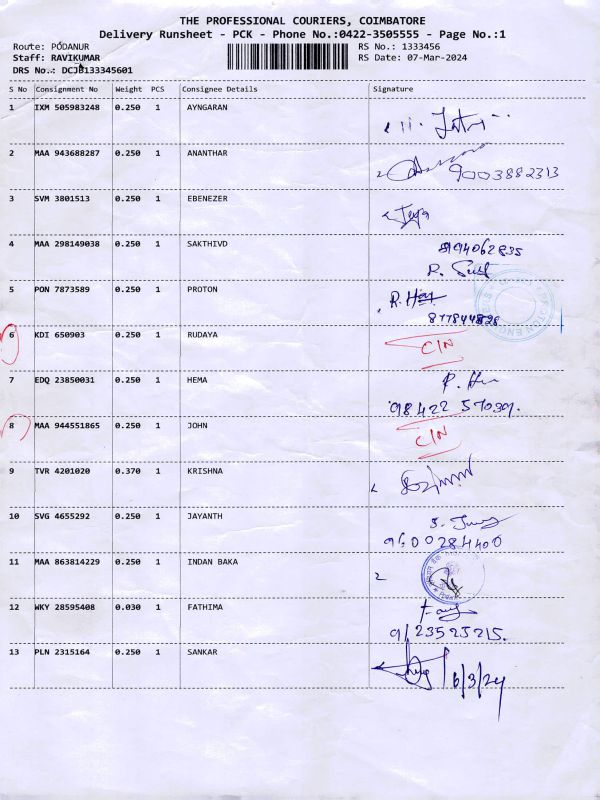 THE PROFESSIONAL COURIERS, COIMBATORE
Delivery Runsheet - PCK - Phone No.:0422-3505555 - Page No.:1
Route: PODANUR RS No.: 1333456
Staff: RAVIKUMAR RS Date: 07-Mar-2024
DRS No.: DCJB133345601
S No Consignment No Weight PCS Consignee Details Signature
1 IXM 505983248 0.250 1 AYNGARAN
2 MAA 943688287 0.250 1 ANANTHAR
9003882313
3 SVM 3801513 0.250 1 EBENEZER
Jeya
4 MAA 298149038 0.250 1 SAKTHIVD
5 PON 7873589 0.250 1 PROTON
6 KDI 650903 0.250 1 RUDAYA
C/N
7 EDQ 23850031 0.250 1 HEMA
8 MAA 944551865 0.250 1 JOHN
C/N
9 TVR 4201020 0.370 1 KRISHNA
10 SVG 4655292 0.250 1 JAYANTH
9600284400
11 MAA 863814229 0.250 1 INDAN BAKA
12 WKY 28595408 0.030 1 FATHIMA
13 PLN 2315164 0.250 1 SANKAR